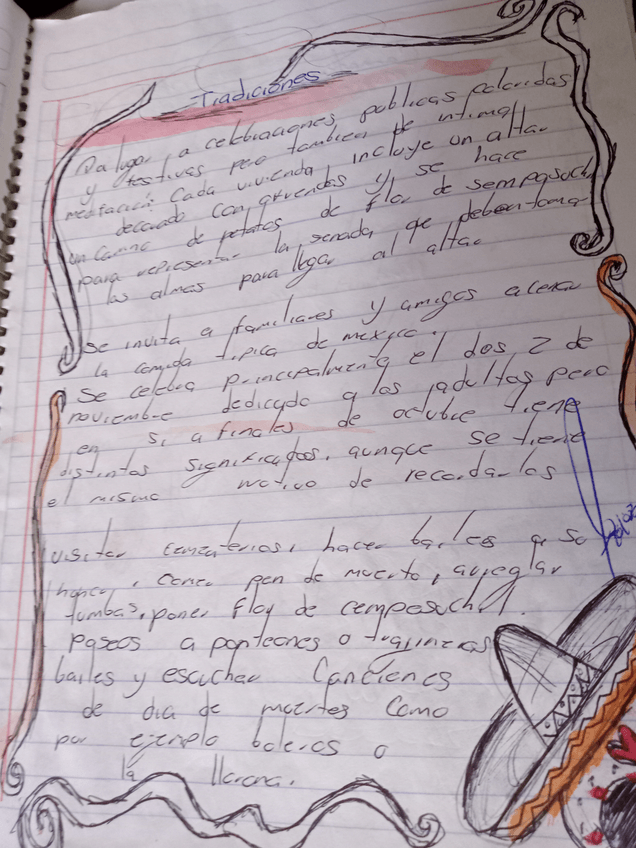 Tradiciones
Da lugar a celebraciones publicas coloridas
y festivas pero tambien de intima
meditación. Cada vivienda incluye un altar
decorado con ofrendas y se hace
un camino de petalos de flor de sempasuchil
para representar la senada que deben tomar
las almas para llgar al altar
se invita a familiares y amigos a cenar
la comida tipica de mexico.
Se celebra principalmente el dos 2 de
noviembre dedicado a los adultos pero
en si a finales de octubre tiene
distintos significados, aunque se tiene
el mismo motivo de recordarlos
visitar cementerios, hacer bailes a su
honor, comer pan de muerto, arreglar
tumbas, poner flor de cempasuchil.
paseos a panteones o trajineras
bailes y escuchar canciones
de dia de muertos como
por ejemplo boleros o
la llorona.